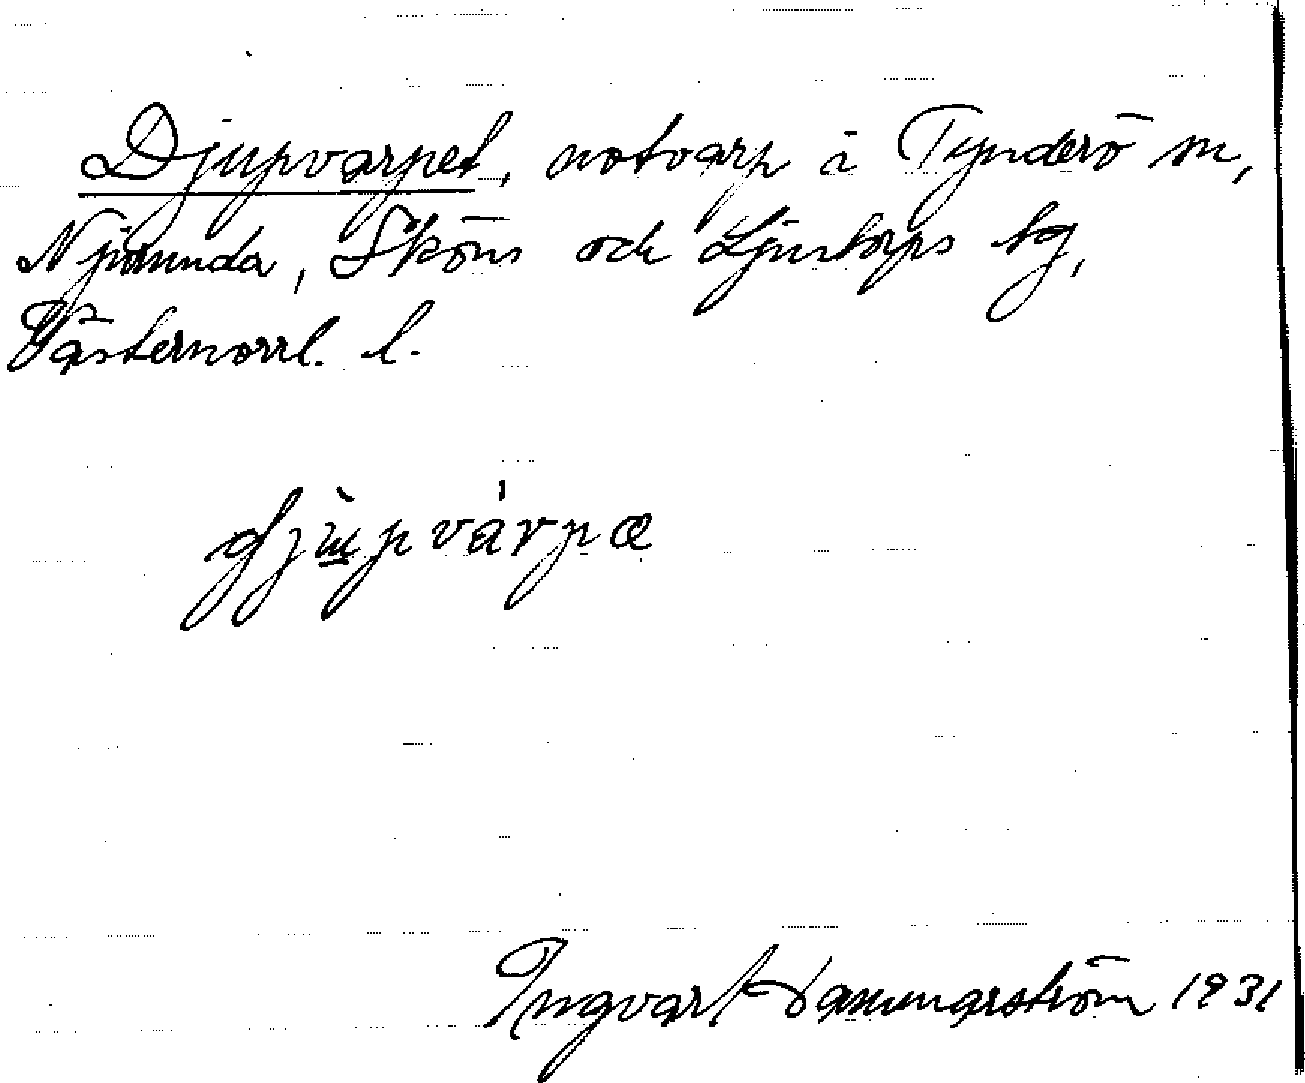 Djupvarpet, notvarp i Tynderö sn,
Njurunda, Sköns och Ljustorps tg,
Västernorrl. l.
djùpvárpæ
Ingvar 1931